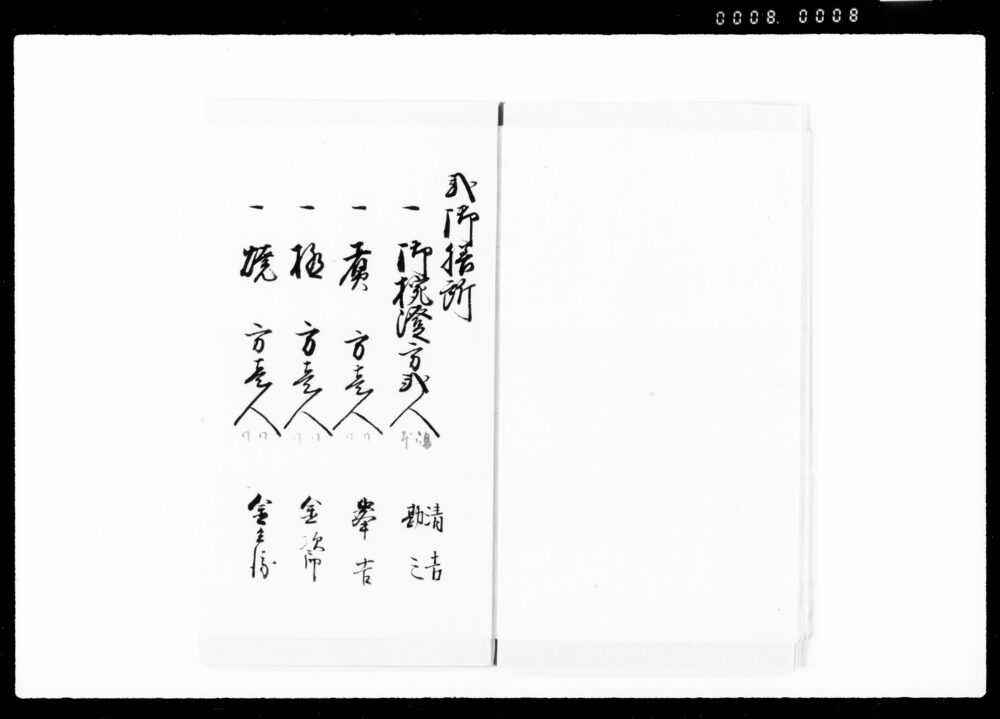 0008. 0008
弐御膳所
一 御椀澄方弐人 清吉
勘之
一 煮 方壱人 〃〃 挙吉
一 極 方壱人 〃〃 金次郎
一 焼 方壱人 〃〃